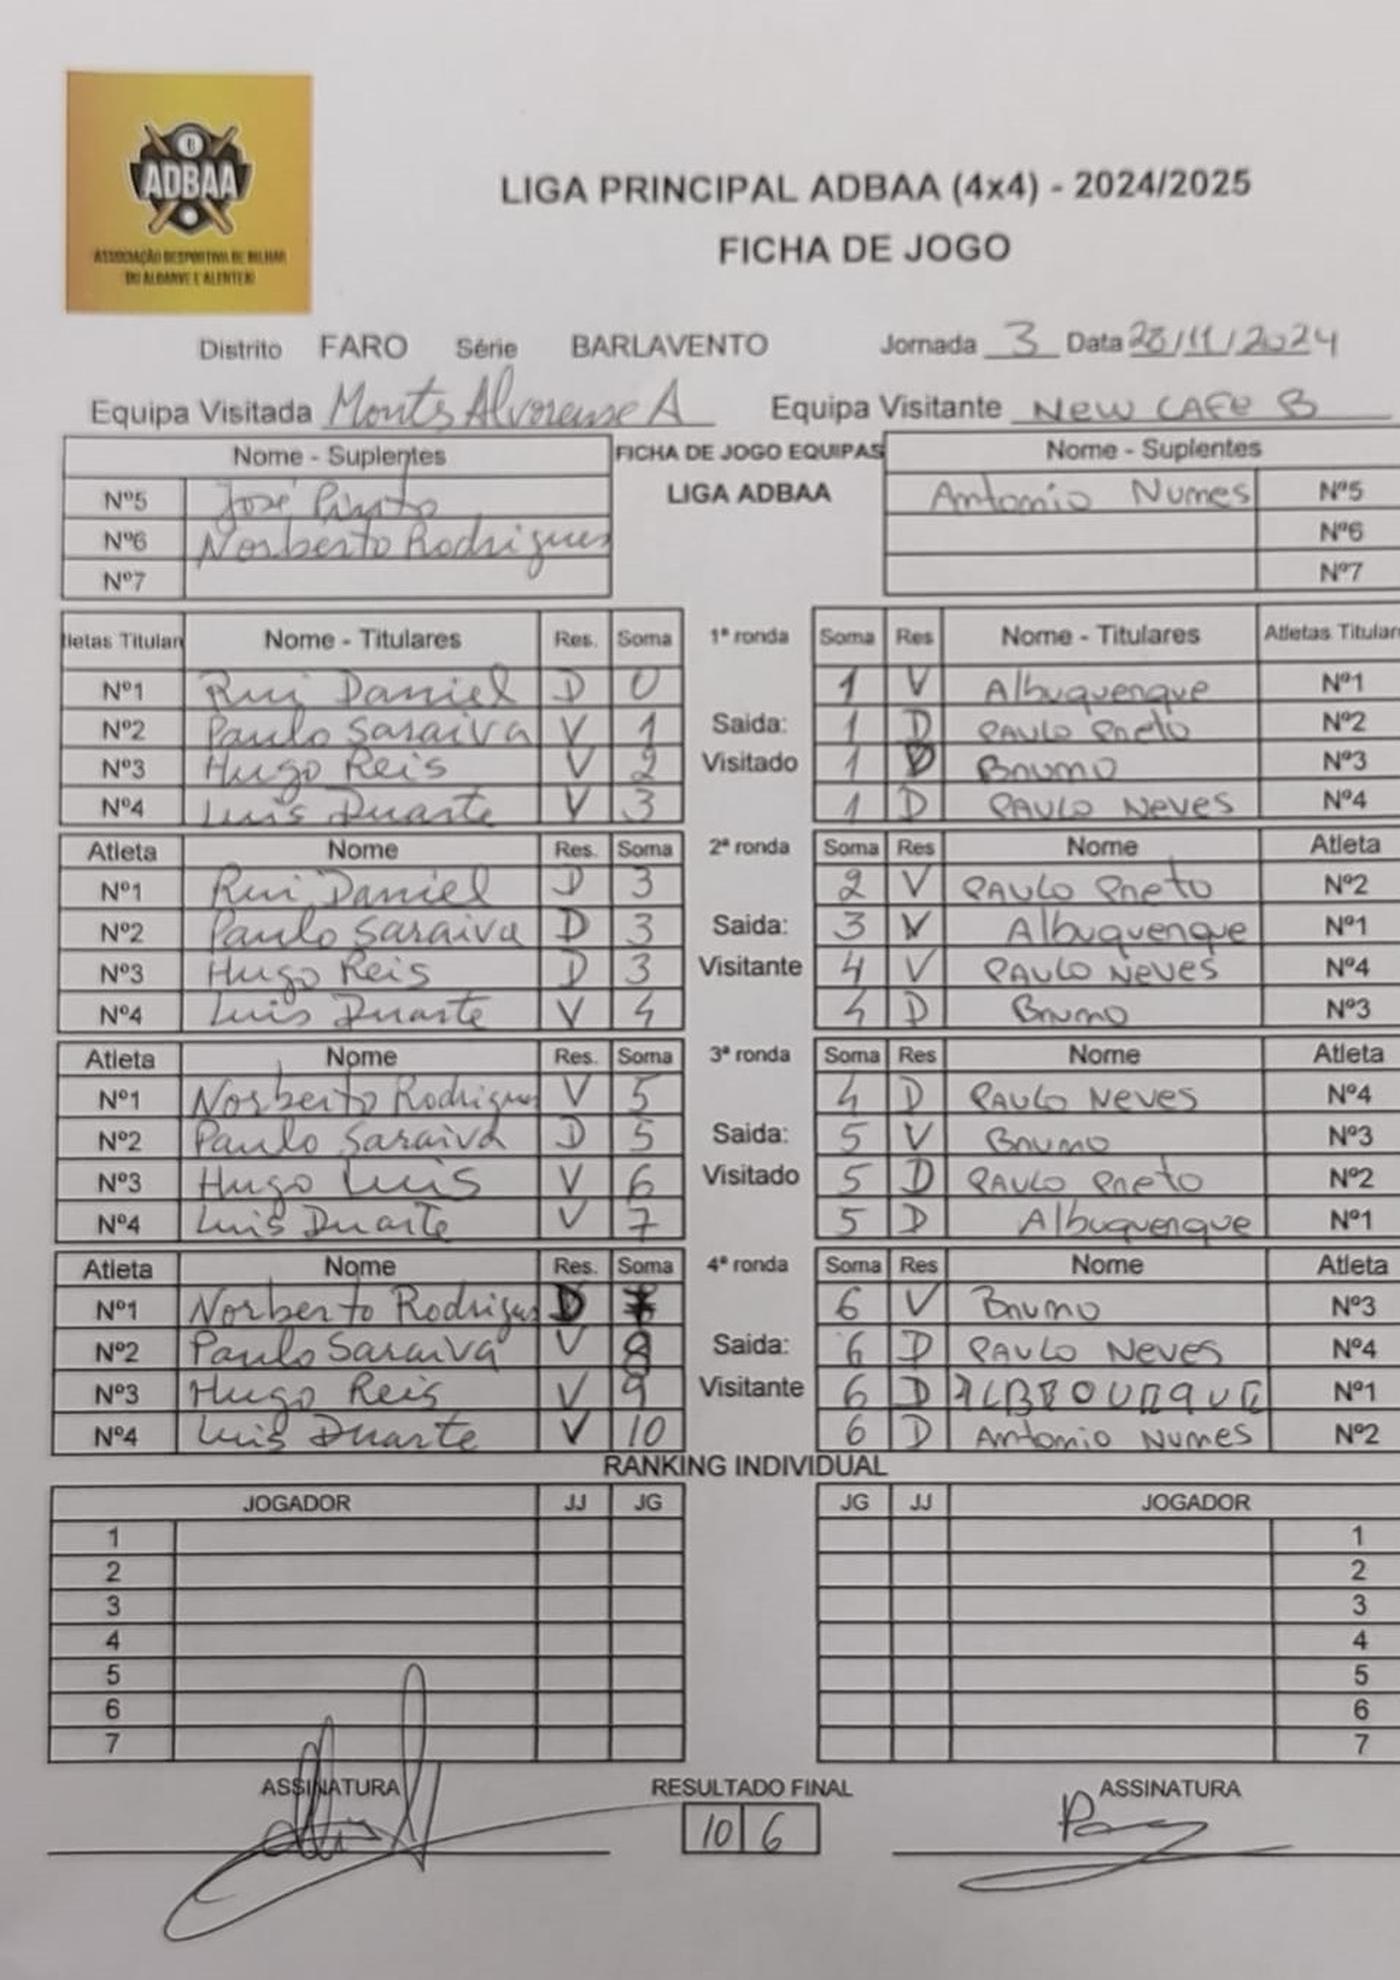 ADBAA
ASSOCIAÇÃO DESPORTIVA DE BILHAR
DO ALGARVE E ALENTEJO
LIGA PRINCIPAL ADBAA (4x4) - 2024/2025
FICHA DE JOGO
Distrito FARO Série BARLAVENTO Jornada 3 Data 28/11/2024
Equipa Visitada Monts Alvorense A Equipa Visitante New CAFe B
Nome - Suplentes FICHA DE JOGO EQUIPAS Nome - Suplentes
Nº5 José Pinto LIGA ADBAA Antonio Nunes Nº5
Nº6 Norberto Rodrigues Nº6
Nº7 Nº7
letas Titular Nome - Titulares Res. Soma 1ª ronda Soma Res Nome - Titulares Atletas Titular
Nº1 Rui Daniel D 0 1 V Albuquerque Nº1
Nº2 Paulo Saraiva V 1 Saida: 1 D PAULO Preto Nº2
Nº3 Hugo Reis V 2 Visitado 1 D Bruno Nº3
Nº4 Luis Duarte V 3 1 D PAULO Neves Nº4
Atleta Nome Res. Soma 2ª ronda Soma Res Nome Atleta
Nº1 Rui Daniel D 3 2 V PAULO Preto Nº2
Nº2 Paulo Saraiva D 3 Saida: 3 V Albuquerque Nº1
Nº3 Hugo Reis D 3 Visitante 4 V PAULO Neves Nº4
Nº4 Luis Duarte V 4 4 D Bruno Nº3
Atleta Nome Res. Soma 3ª ronda Soma Res Nome Atleta
Nº1 Norberto Rodrigues V 5 4 D PAULO Neves Nº4
Nº2 Paulo Saraiva D 5 Saida: 5 V Bruno Nº3
Nº3 Hugo Luis V 6 Visitado 5 D PAULO Preto Nº2
Nº4 Luis Duarte V 7 5 D Albuquerque Nº1
Atleta Nome Res. Soma 4ª ronda Soma Res Nome Atleta
Nº1 Norberto Rodrigues D 7 6 V Bruno Nº3
Nº2 Paulo Saraiva V 8 Saida: 6 D PAULO Neves Nº4
Nº3 Hugo Reis V 9 Visitante 6 D Nº1
Nº4 Luis Duarte V 10 6 D Antonio Nunes Nº2
RANKING INDIVIDUAL
JOGADOR JJ JG JG JJ JOGADOR
1 1
2 2
3 3
4 4
5 5
6 6
7 7
ASSINATURA RESULTADO FINAL ASSINATURA
10 6